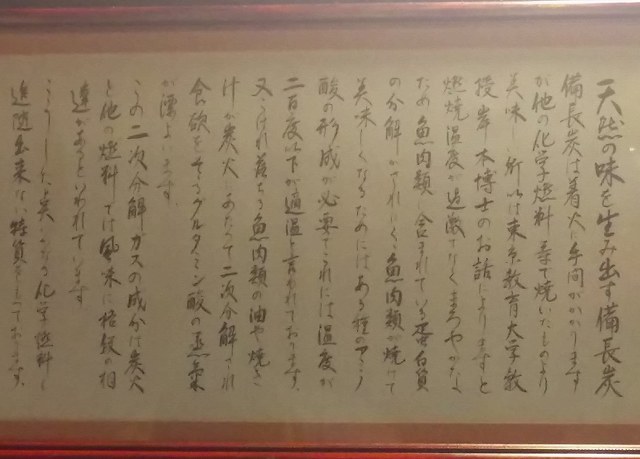 天然の味を生み出す備長炭
備長炭は着火に手間がかかります
が他の化学燃料等で焼いたものより
美味しい所以は東京教育大学教
授岸本博士のお話によりますと
燃焼温度が過激でなくまろやかなる
ため魚肉類に含まれている蛋白質
の分解がされにくく魚肉類が焼けて
美味しくなるためにはある種のアミノ
酸の形成が必要でこれには温度が
二百度以下が適温と言われております、
又こげれ落ちる魚肉類の油や焼き
汁が炭火にあたって二次分解され
食欲をそそるグルタミン酸の蒸氣
が漂よいます。
この二次分解ガスの成分は炭火
と他の燃料では風味に格段の相
違があるといわれています
こうした炭は化学燃料に
追随出来ない特質をもっております。